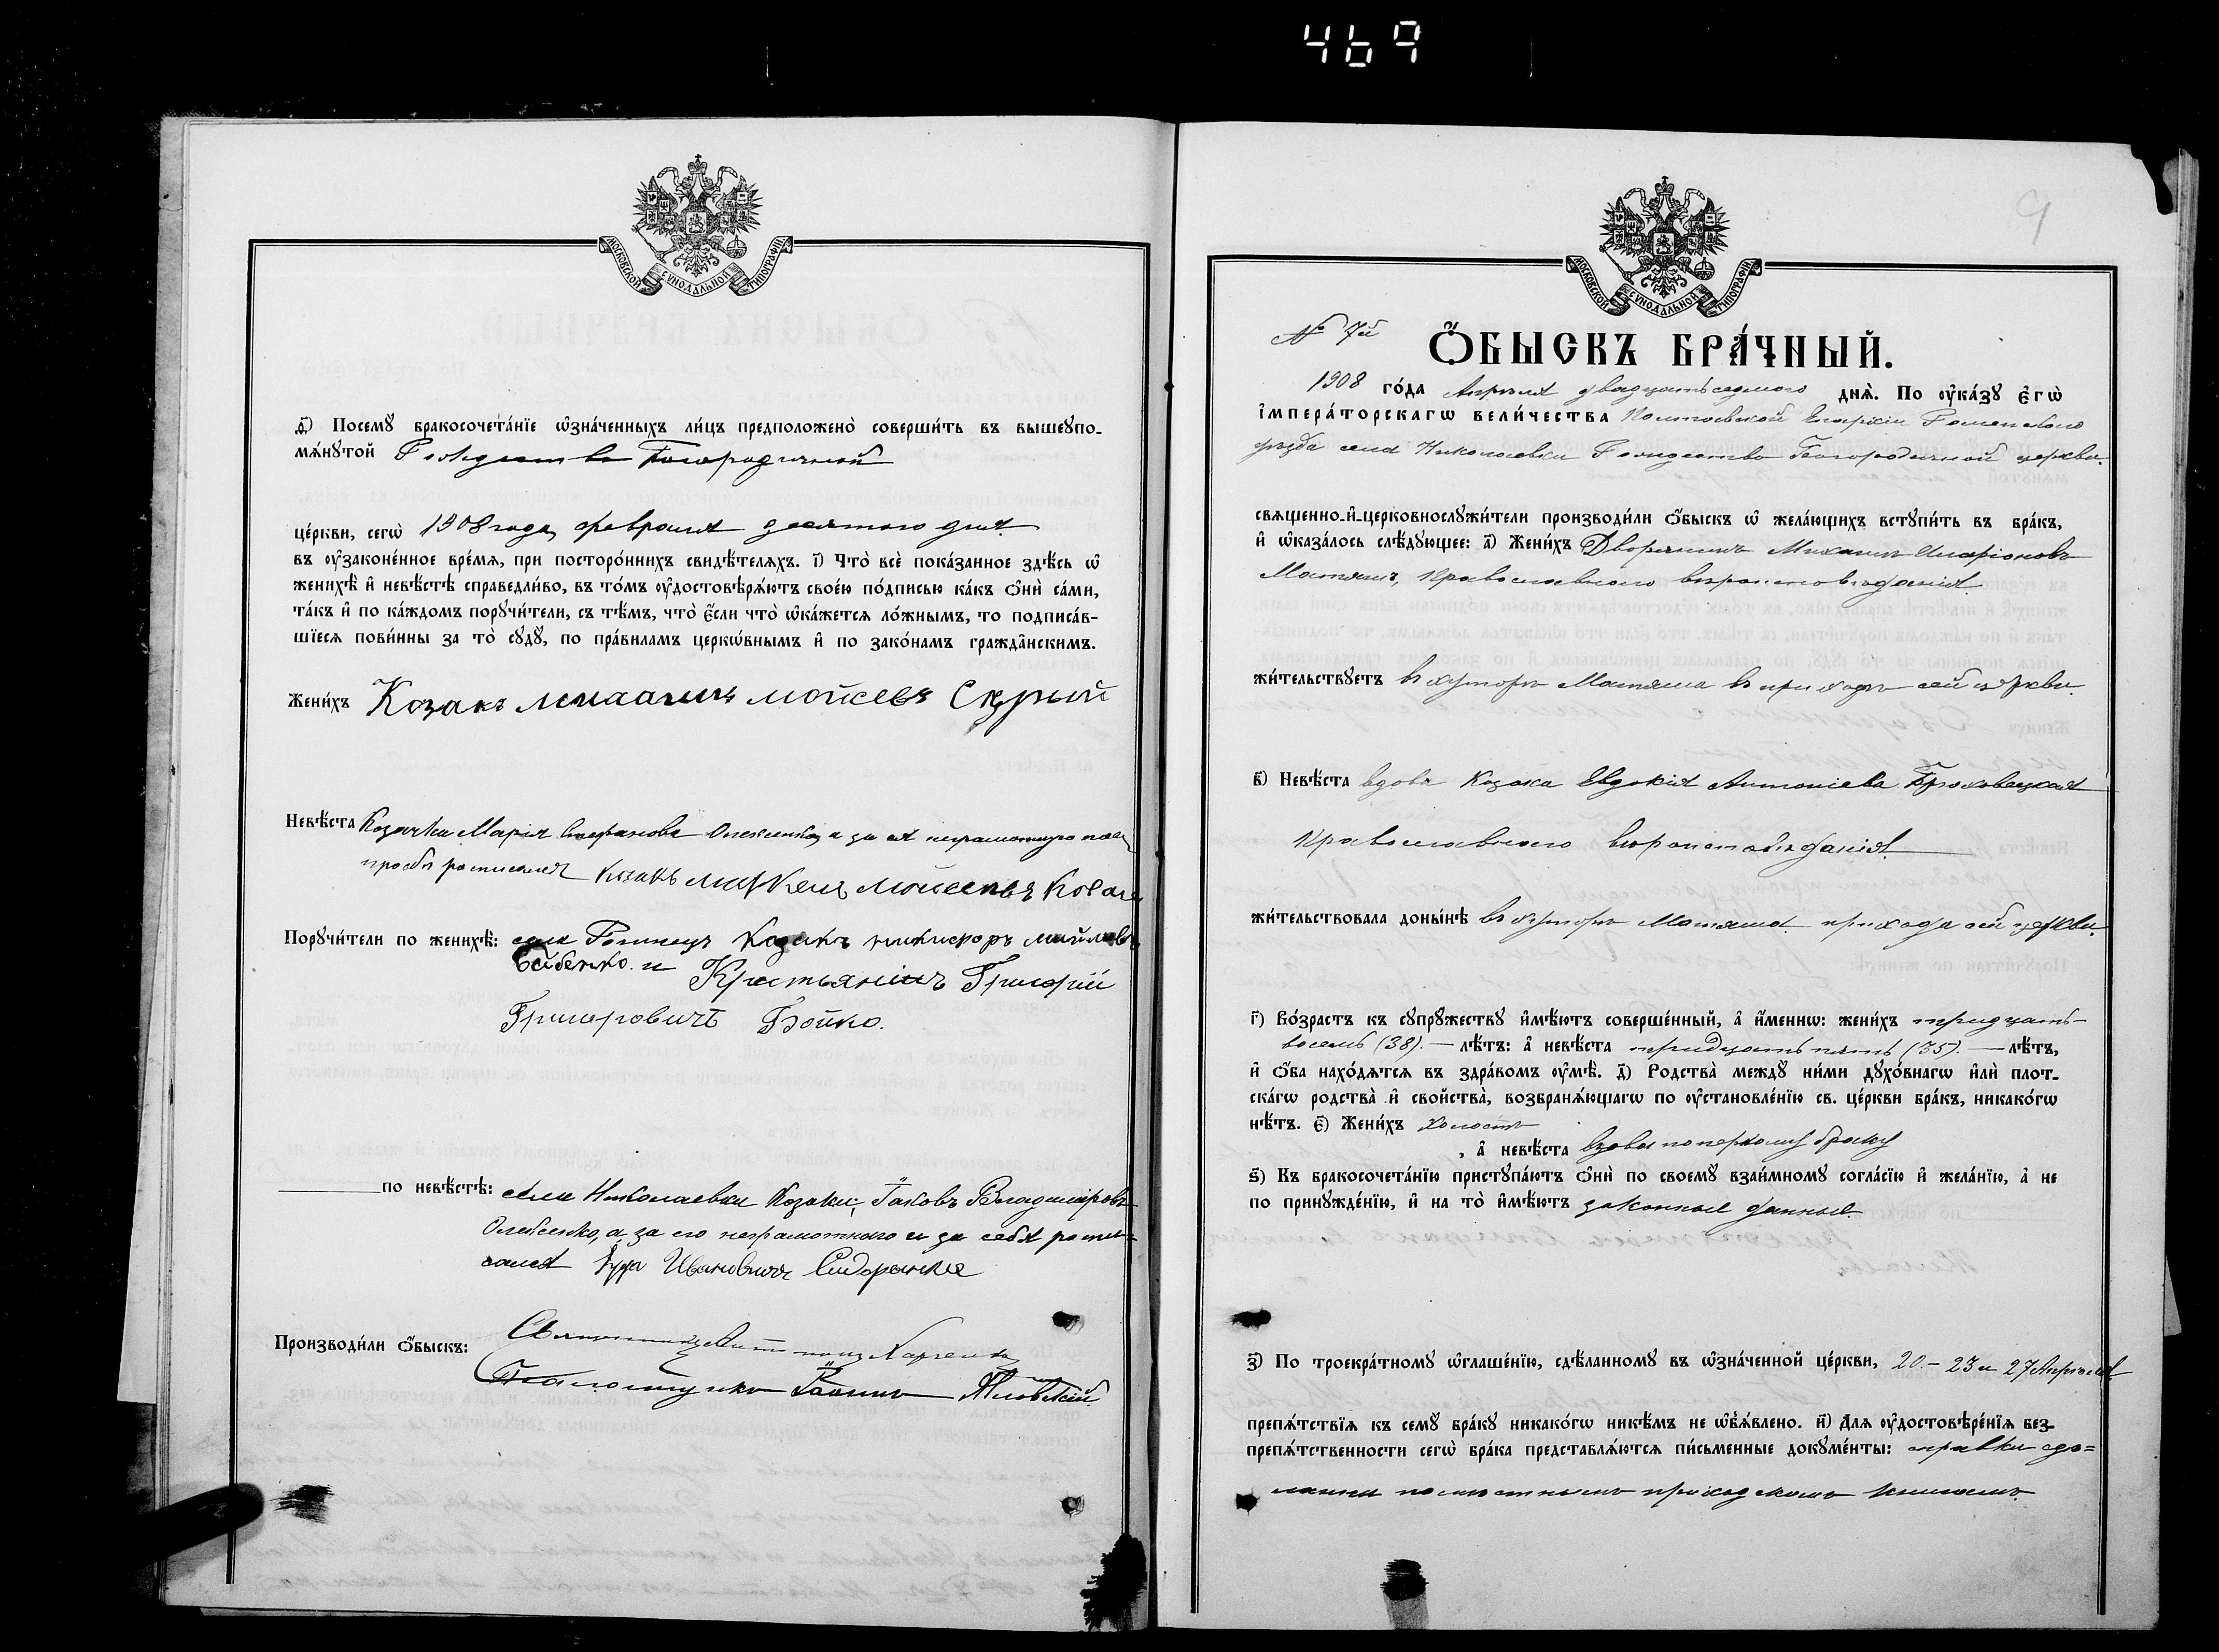 469
МОСКОВСКОЙ СѴНОДАЛЬНОЙ ТИПОГРАФІИ
ѳ҃) Посемꙋ бракосочета́нїе ѡ҆зна́ченныхъ ли́цъ предположено̀ соверши́ть въ вышеꙋпо-
мѧ́нꙋтой Рождество Богородичной
це́ркви, сегѡ̀ 1908 года, февраля десятого дня
въ ᲂу҆законе́нное вре́мѧ, при посторо́ннихъ свидѣ́телѧхъ. і҃) Что̀ всѐ пока́занное здѣ́сь ѡ҆
женихѣ̀ и҆ невѣ́стѣ справедли́во, въ то́мъ ᲂу҆достовѣрѧ́ютъ свое́ю по́дписью ка́къ ѻ҆нѝ са́ми,
та́къ и҆ по ка́ждомъ порꙋчи́тели, съ тѣ́мъ, что̀ є҆́сли что̀ ѡ҆ка́жетсѧ ло́жнымъ, то подписа́в-
шїесѧ пови́нны за то̀ сꙋдꙋ̀, по пра́виламъ церкѡ́внымъ и҆ по зако́намъ гражда̂нскимъ.
Жени́хъ Козакъ Михаилъ Мойсевъ Сѣрый
Невѣ́ста Козачка Марія Стефанова Олексенкова, а за ея неграмотную по ея
просьбѣ росписался Козакъ Маркелъ Мойсеевъ Ковале
Порꙋчи́тели по женихѣ̀: села Ромнецъ Козакъ Никифоръ
Бабенко. и Крестьянинъ Григорій
Григоровичъ Бойко.
по невѣ́стѣ: села Николаевки Козаки; Іаковъ Владиміровъ
Олексенко, а за его неграмотного и за себя роспи-
сался Іуда Ивановичъ Сидоренко
Производи́ли ѻ҆́быскъ: Священникъ Харченко
Псаломщикъ Іоаннъ
9
МОСКОВСКОЙ СѴНОДАЛЬНОЙ ТИПОГРАФІИ
№ 7й
Ѻ҆́БЫСКЪ БРА́ЧНЫЙ.
1908 го́да Апрѣля двадцать седмого днѧ̀. По ᲂу҆ка́зꙋ Є҆гѡ̀
І҆мпера́торскагѡ вели́чества Полтавской Епархіи Роменского
уѣзда села Николаевки Рождество Богородичной церкви.
свѧще́нно-и҆-церковнослꙋжи́тели производи́ли ѻ҆́быскъ ѡ҆ жела́ющихъ встꙋпи́ть въ бра́къ,
и҆ ѡ҆каза́лось слѣ́дꙋющее: а҃) Жени́хъ Дворянинъ Михаилъ Иларіоновъ
Матяшъ, православного вѣроисповѣданія.
жи́тельствꙋетъ въ хуторѣ Матяша въ приходѣ сей церкви.
в҃) Невѣ́ста вдова Козака Евдокія Антоніева Брюховецкая
православного вѣроисповѣданія.
жи́тельствовала доны́нѣ въ хуторѣ Матяша прихода сей церкви.
г҃) Во́зрастъ къ сꙋпрꙋ́жествꙋ и҆мѣ́ютъ соверше́нный, а҆ и҆́меннѡ: жени́хъ тридцать
восемь (38). лѣ́тъ: а҆ невѣ́ста тридцать пять (35). лѣ́тъ,
и҆ ѻ҆́ба нахо́дѧтсѧ въ здра́вомъ ᲂу҆мѣ̀. д҃) Родства̀ междꙋ̀ ни́ми дꙋхо́внагѡ и҆лѝ плот-
ска́гѡ родства̀ и҆ свойства̀, возбранѧ́ющагѡ по ᲂу҆становле́нїю св. це́ркви бра́къ, никако́гѡ
нѣ́тъ. є҃) Жени́хъ холостъ
, а҆ невѣ́ста вдова по первому браку
ѕ҃) Къ бракосочета́нїю пристꙋпа́ютъ ѻ҆нѝ по своемꙋ̀ взаи́мномꙋ согла́сїю и҆ жела́нїю, а҆ не
по принꙋжде́нїю, и҆ на то̀ и҆мѣ́ютъ законные данные.
з҃) По троекра́тномꙋ ѡ҆глаше́нїю, сдѣ́ланномꙋ въ ѡ҆зна́ченной це́ркви, 20.- 23 и 27 Апрѣля
препѧ́тствїѧ къ семꙋ̀ бра́кꙋ никако́гѡ никѣ́мъ не ѡ҆б̾ѧ́влено. и҃) Длѧ ᲂу҆достовѣре́нїѧ без-
препѧ́тственности сегѡ̀ бра́ка представлѧ́ютсѧ пи́сьменные докꙋме́нты: справки сдѣ=
ланы по мѣстнымъ приходскимъ книгамъ.